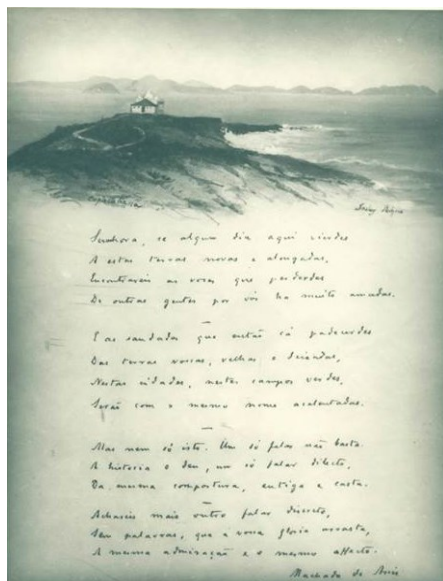 Copacabana
Senhora, se algum dia aqui vindes
A estas terras novas e alongadas,
Encontrareis as vozes que perderdes
De outras gentes por vós ha muito amadas.
E as saudades que então cá padecerdes
Das terras vossas, velhas e deixadas,
Nestas cidades, nestes campos verdes,
Serão com o mesmo nome acalentadas.
Mas nem só isto. Um só falar não basta.
A historia o deu, um só falar dilecto,
Da mesma compostura, antiga e casta.
Achareis mais outro falar discreto,
Sem palavras, que a vossa gloria arrasta,
A mesma admiração e o mesmo affecto.
Machado de Assis